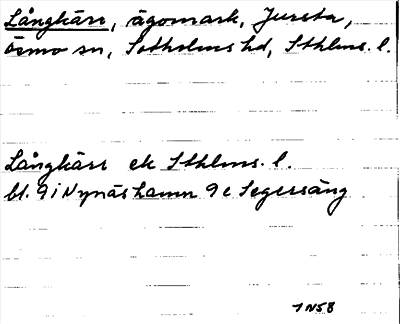 Långkärr, ägomark, Jursta,
Ösmo sn, Sotholms hd, Sthlms. l.
Långkärr ek Sthlms. l.
bl. 9i Nynäshamn 9e Segersäng
1 N58